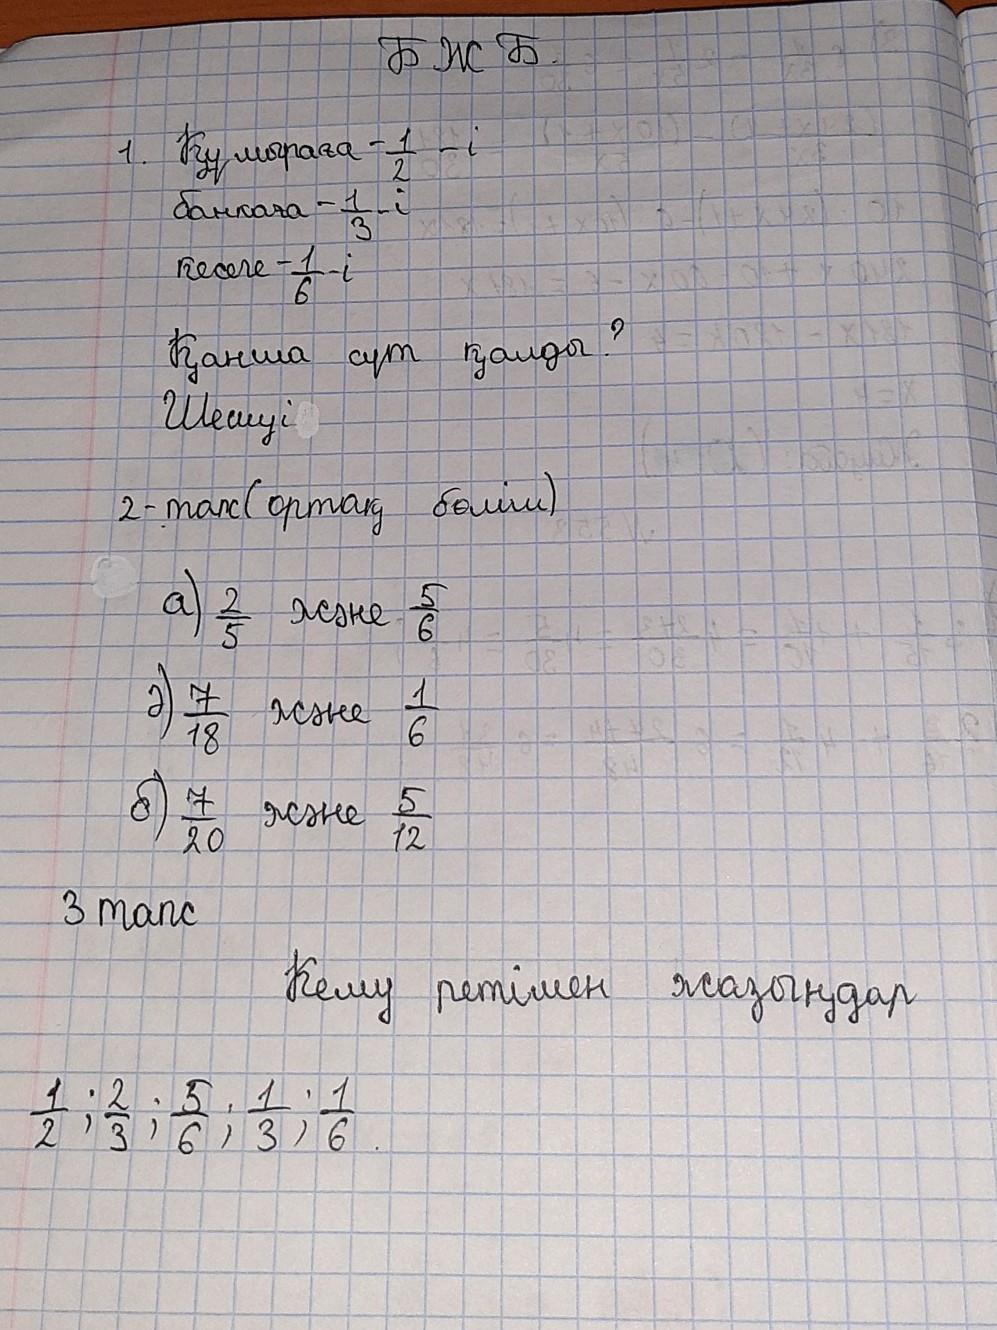 БЖБ.
1. Құмыраға - 1/2 - і
банкаға - 1/3 - і
кесеге - 1/6 - і
Қанша сүт қалды?
Шешуі
2-тапс(ортақ бөлім)
а) 2/5 және 5/6
ә) 7/18 және 1/6
б) 7/20 және 5/12
3 тапс
Кему ретімен жазыңдар
1/2 ; 2/3 ; 5/6 ; 1/3 ; 1/6 .